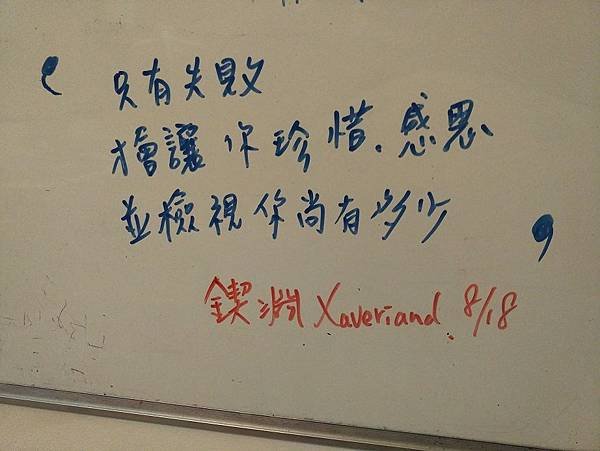 只有失敗
才會讓你珍惜、感恩
並檢視你尚有多少
鍥淵 Xaveriand 8/18